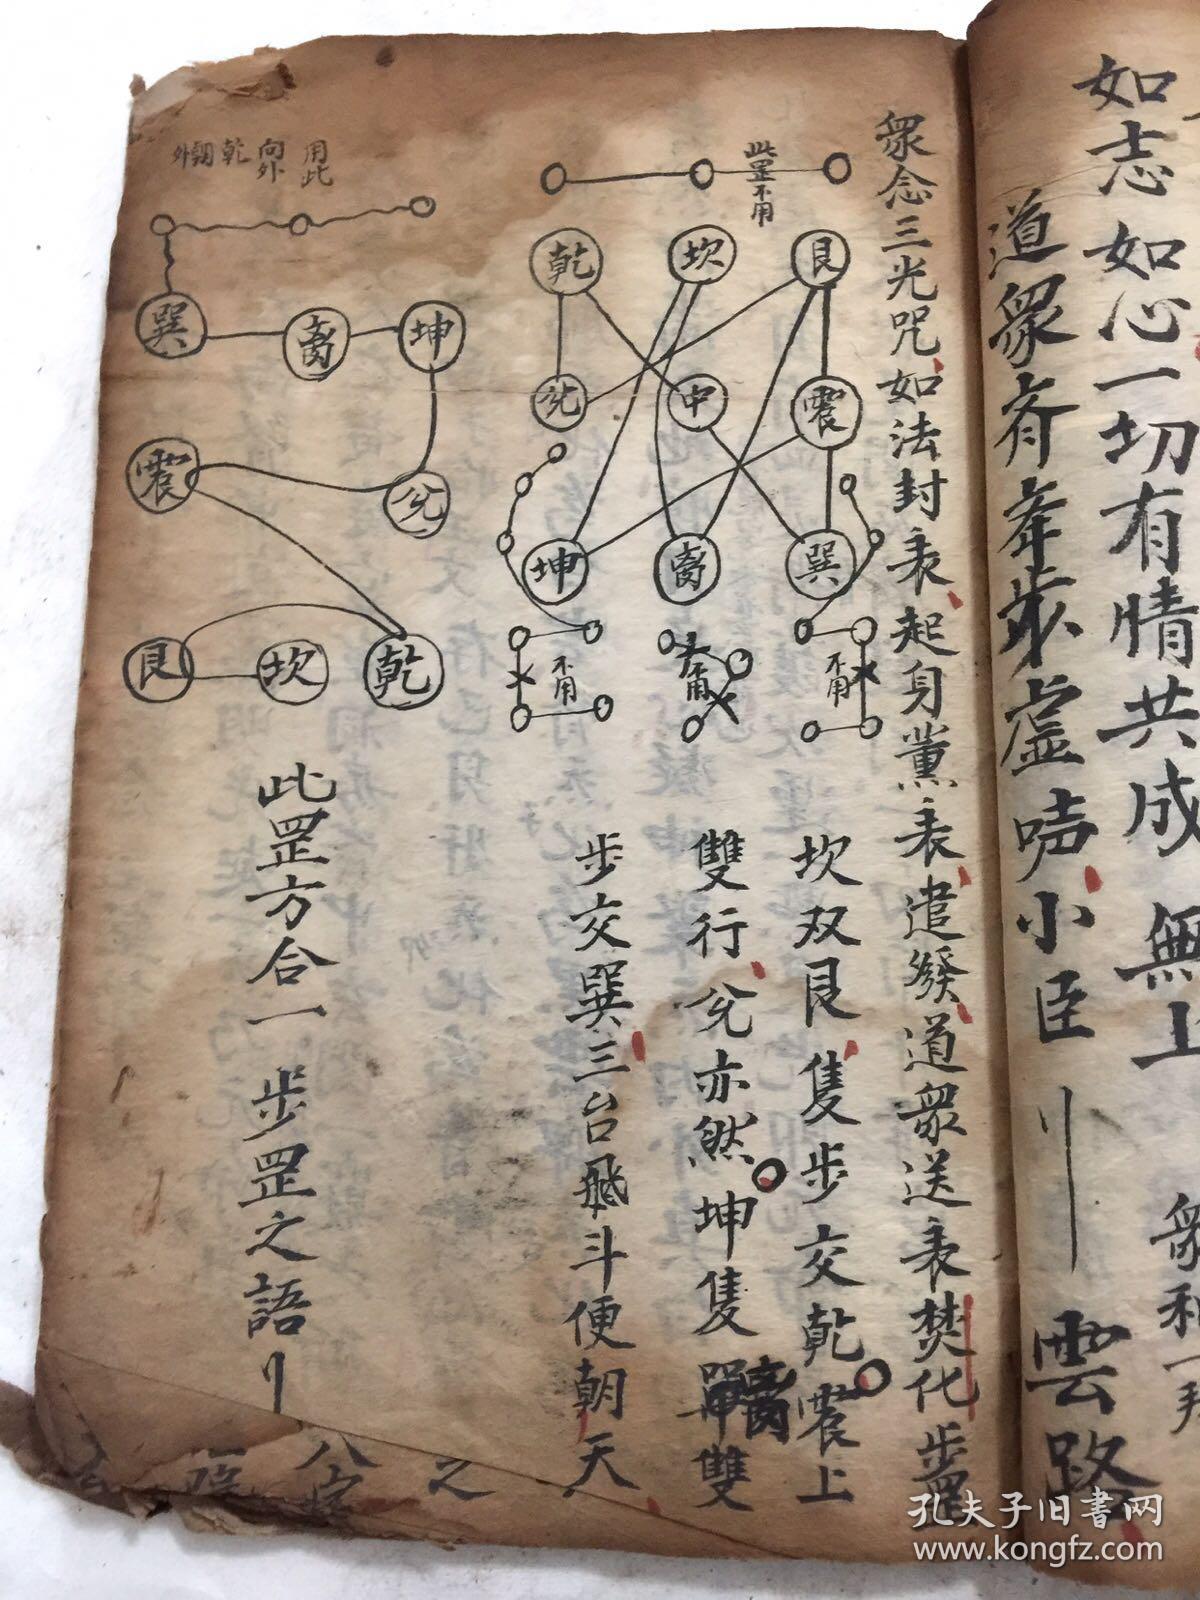 如志如心一切有情共成無上
衆和一拜
道衆齊舉步虛声小臣
雲路
衆念三光咒如法封表起身薰表遣發道衆送表焚化步罡
坎双艮隻步交乾震上
雙行兌亦然坤隻離單雙
步交巽三台飛斗便朝天
此罡不用
乾 坎 艮
兌 中 震
坤 离 巽
不用 不用 不用
用此
向外
乾
外
巽 离 坤
震 兌
艮 坎 乾
此罡方合一步罡之語
之
孔夫子旧書网
www.kongfz.com